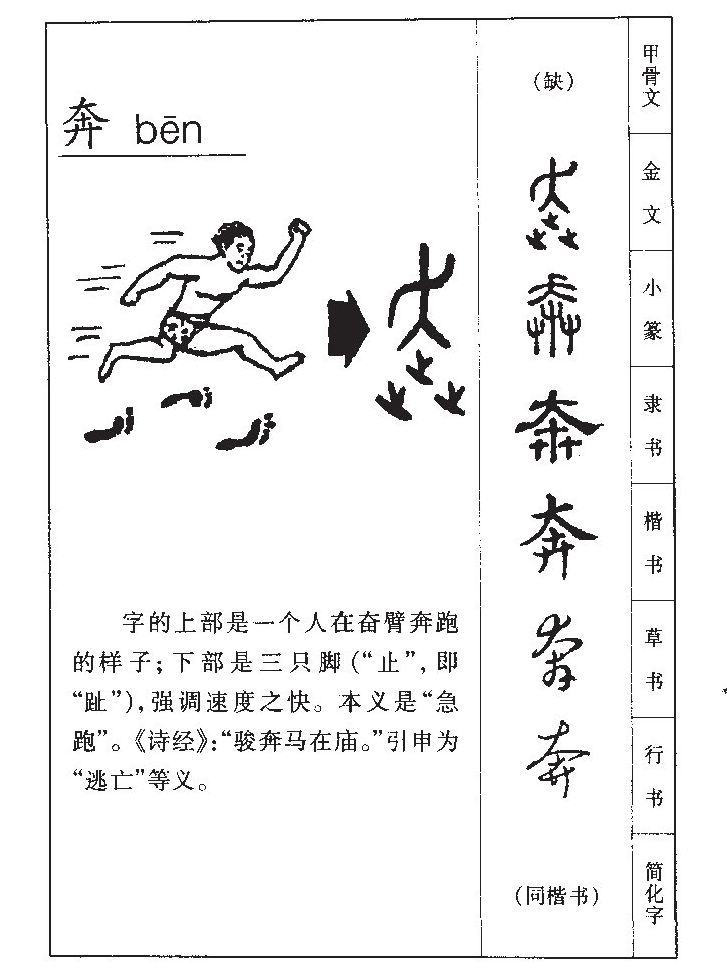 奔 bēn
字的上部是一个人在奋臂奔跑
的样子；下部是三只脚（“止”，即
“趾”），强调速度之快。本义是“急
跑”。《诗经》：“骏奔马在庙。”引申为
“逃亡”等义。
（缺）
奔
奔
奔
奔
奔
奔
（同楷书）
甲骨文
金文
小篆
隶书
楷书
草书
行书
简化字